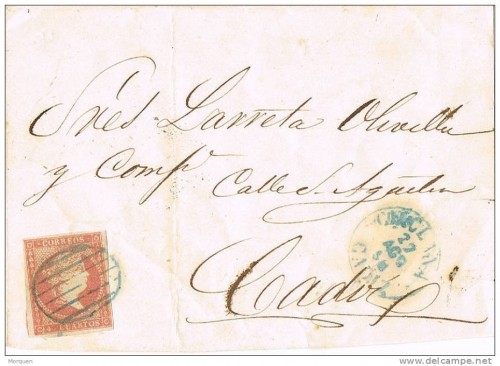 Sres Larreta Olivella
y Compª
Calle S. Agustin
Cadiz
CORREOS
4 CUARTOS
CHICLANA
22
AGO
CADIZ
Morquen
delcampe.net